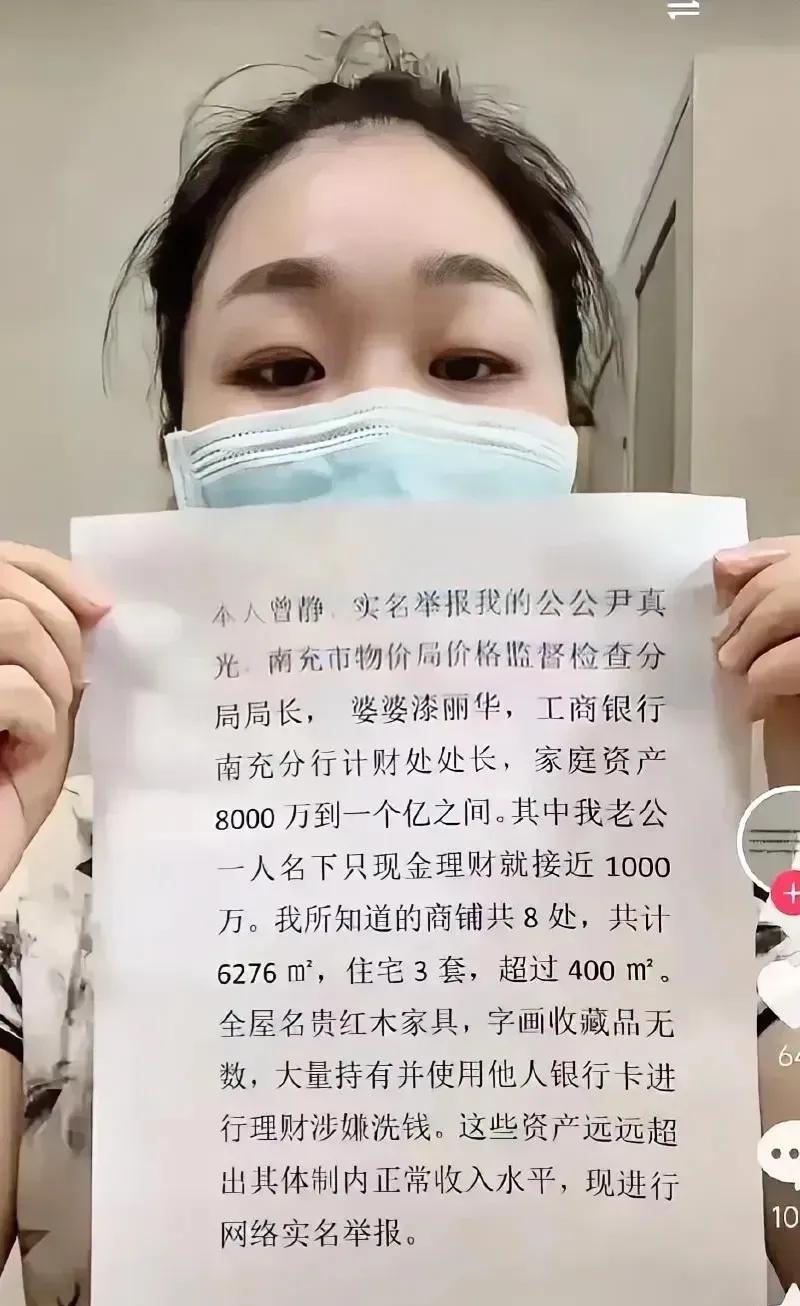 本人曾静、实名举报我的公公尹真
光、南充市物价局价格监督检查分
局局长， 婆婆漆丽华，工商银行
南充分行计财处处长，家庭资产
8000 万到一个亿之间。其中我老公
一人名下只现金理财就接近 1000
万。我所知道的商铺共 8 处，共计
6276 ㎡，住宅 3 套，超过 400 ㎡。
全屋名贵红木家具，字画收藏品无
数，大量持有并使用他人银行卡进
行理财涉嫌洗钱。这些资产远远超
出其体制内正常收入水平，现进行
网络实名举报。